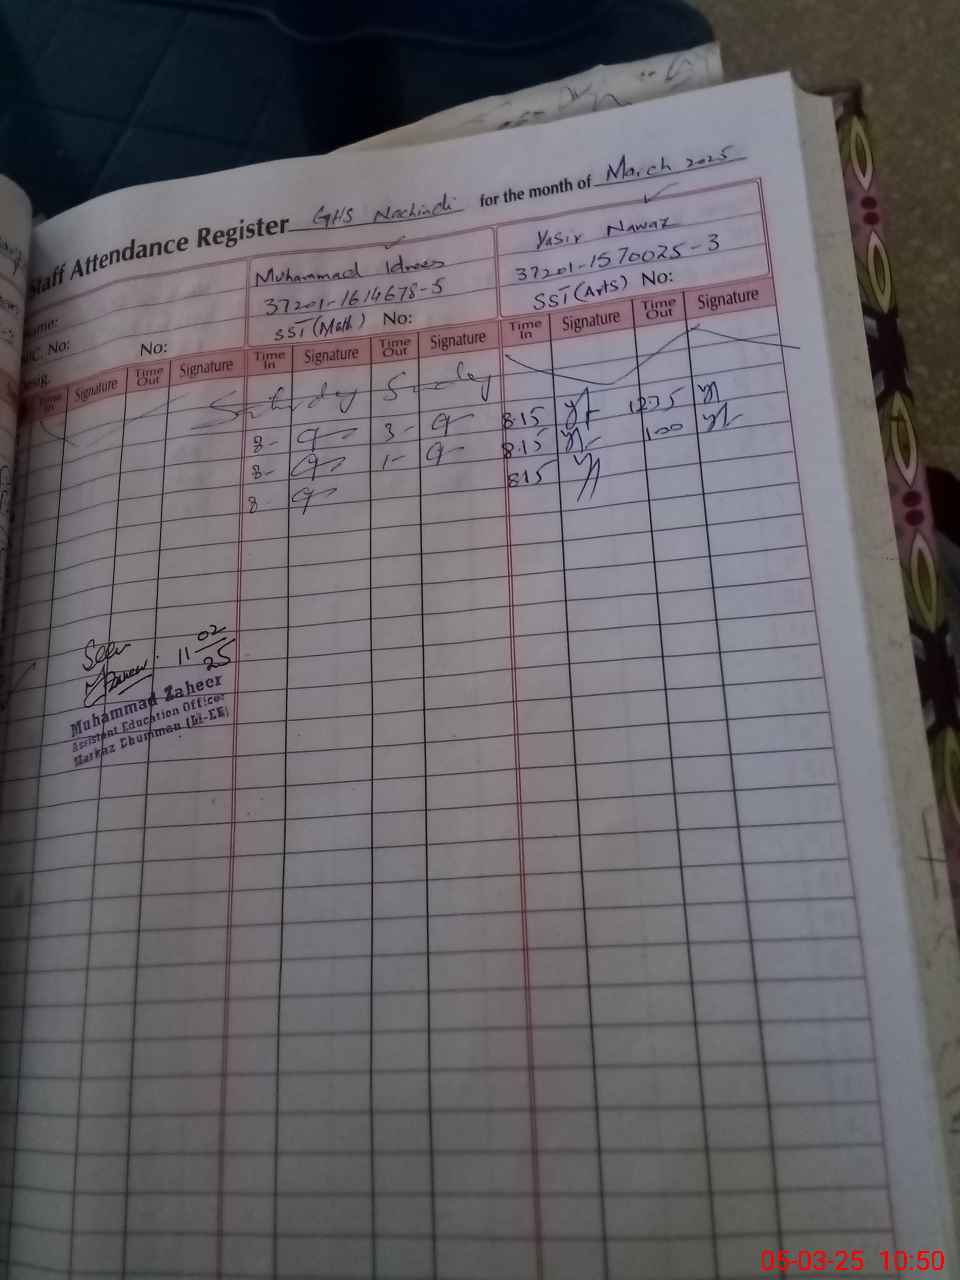 Staff Attendance Register GHS Nachindi for the month of March 2025
Name: Muhammad Idrees Yasir Nawaz
NIC. No: 37201-1614678-5 37201-1570025-3
Desig. No: SST (Math) No: SST (Arts) No:
Time In Signature Time Out Signature Time In Signature Time Out Signature Time In Signature Time Out Signature
Saturday Sunday
8- 3- 8.15 1235
8- 1- 8.15 1.00
8- 815
Seen
11 02 25
Muhammad Zaheer
Assistant Education Officer
Markaz Dhumman
05-03-25 10:50